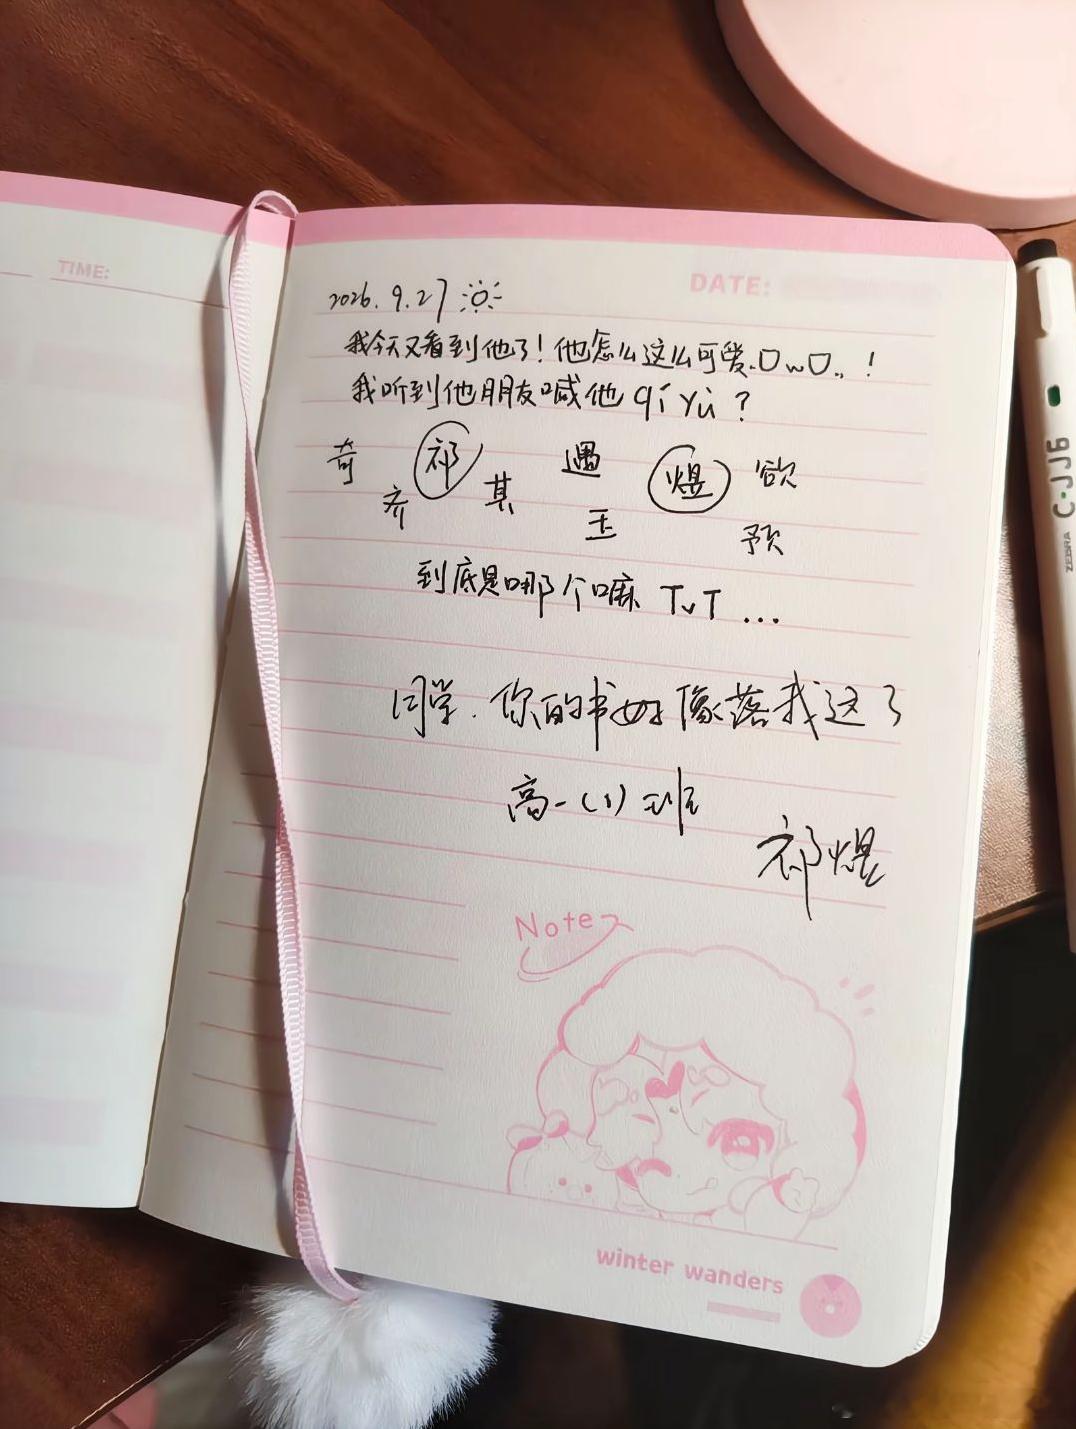 TIME:
DATE:
2026.9.27
我今天又看到他了！他怎么这么可爱.OwO..！
我听到他朋友喊他 qí yù？
奇 祁 遇 煜 欲
齐 其 玉 预
到底是哪个嘛 TvT ...
同学.你的书好像落我这了
高一(1)班
祁煜
Note
winter wanders
ZEBRA C·JJ6